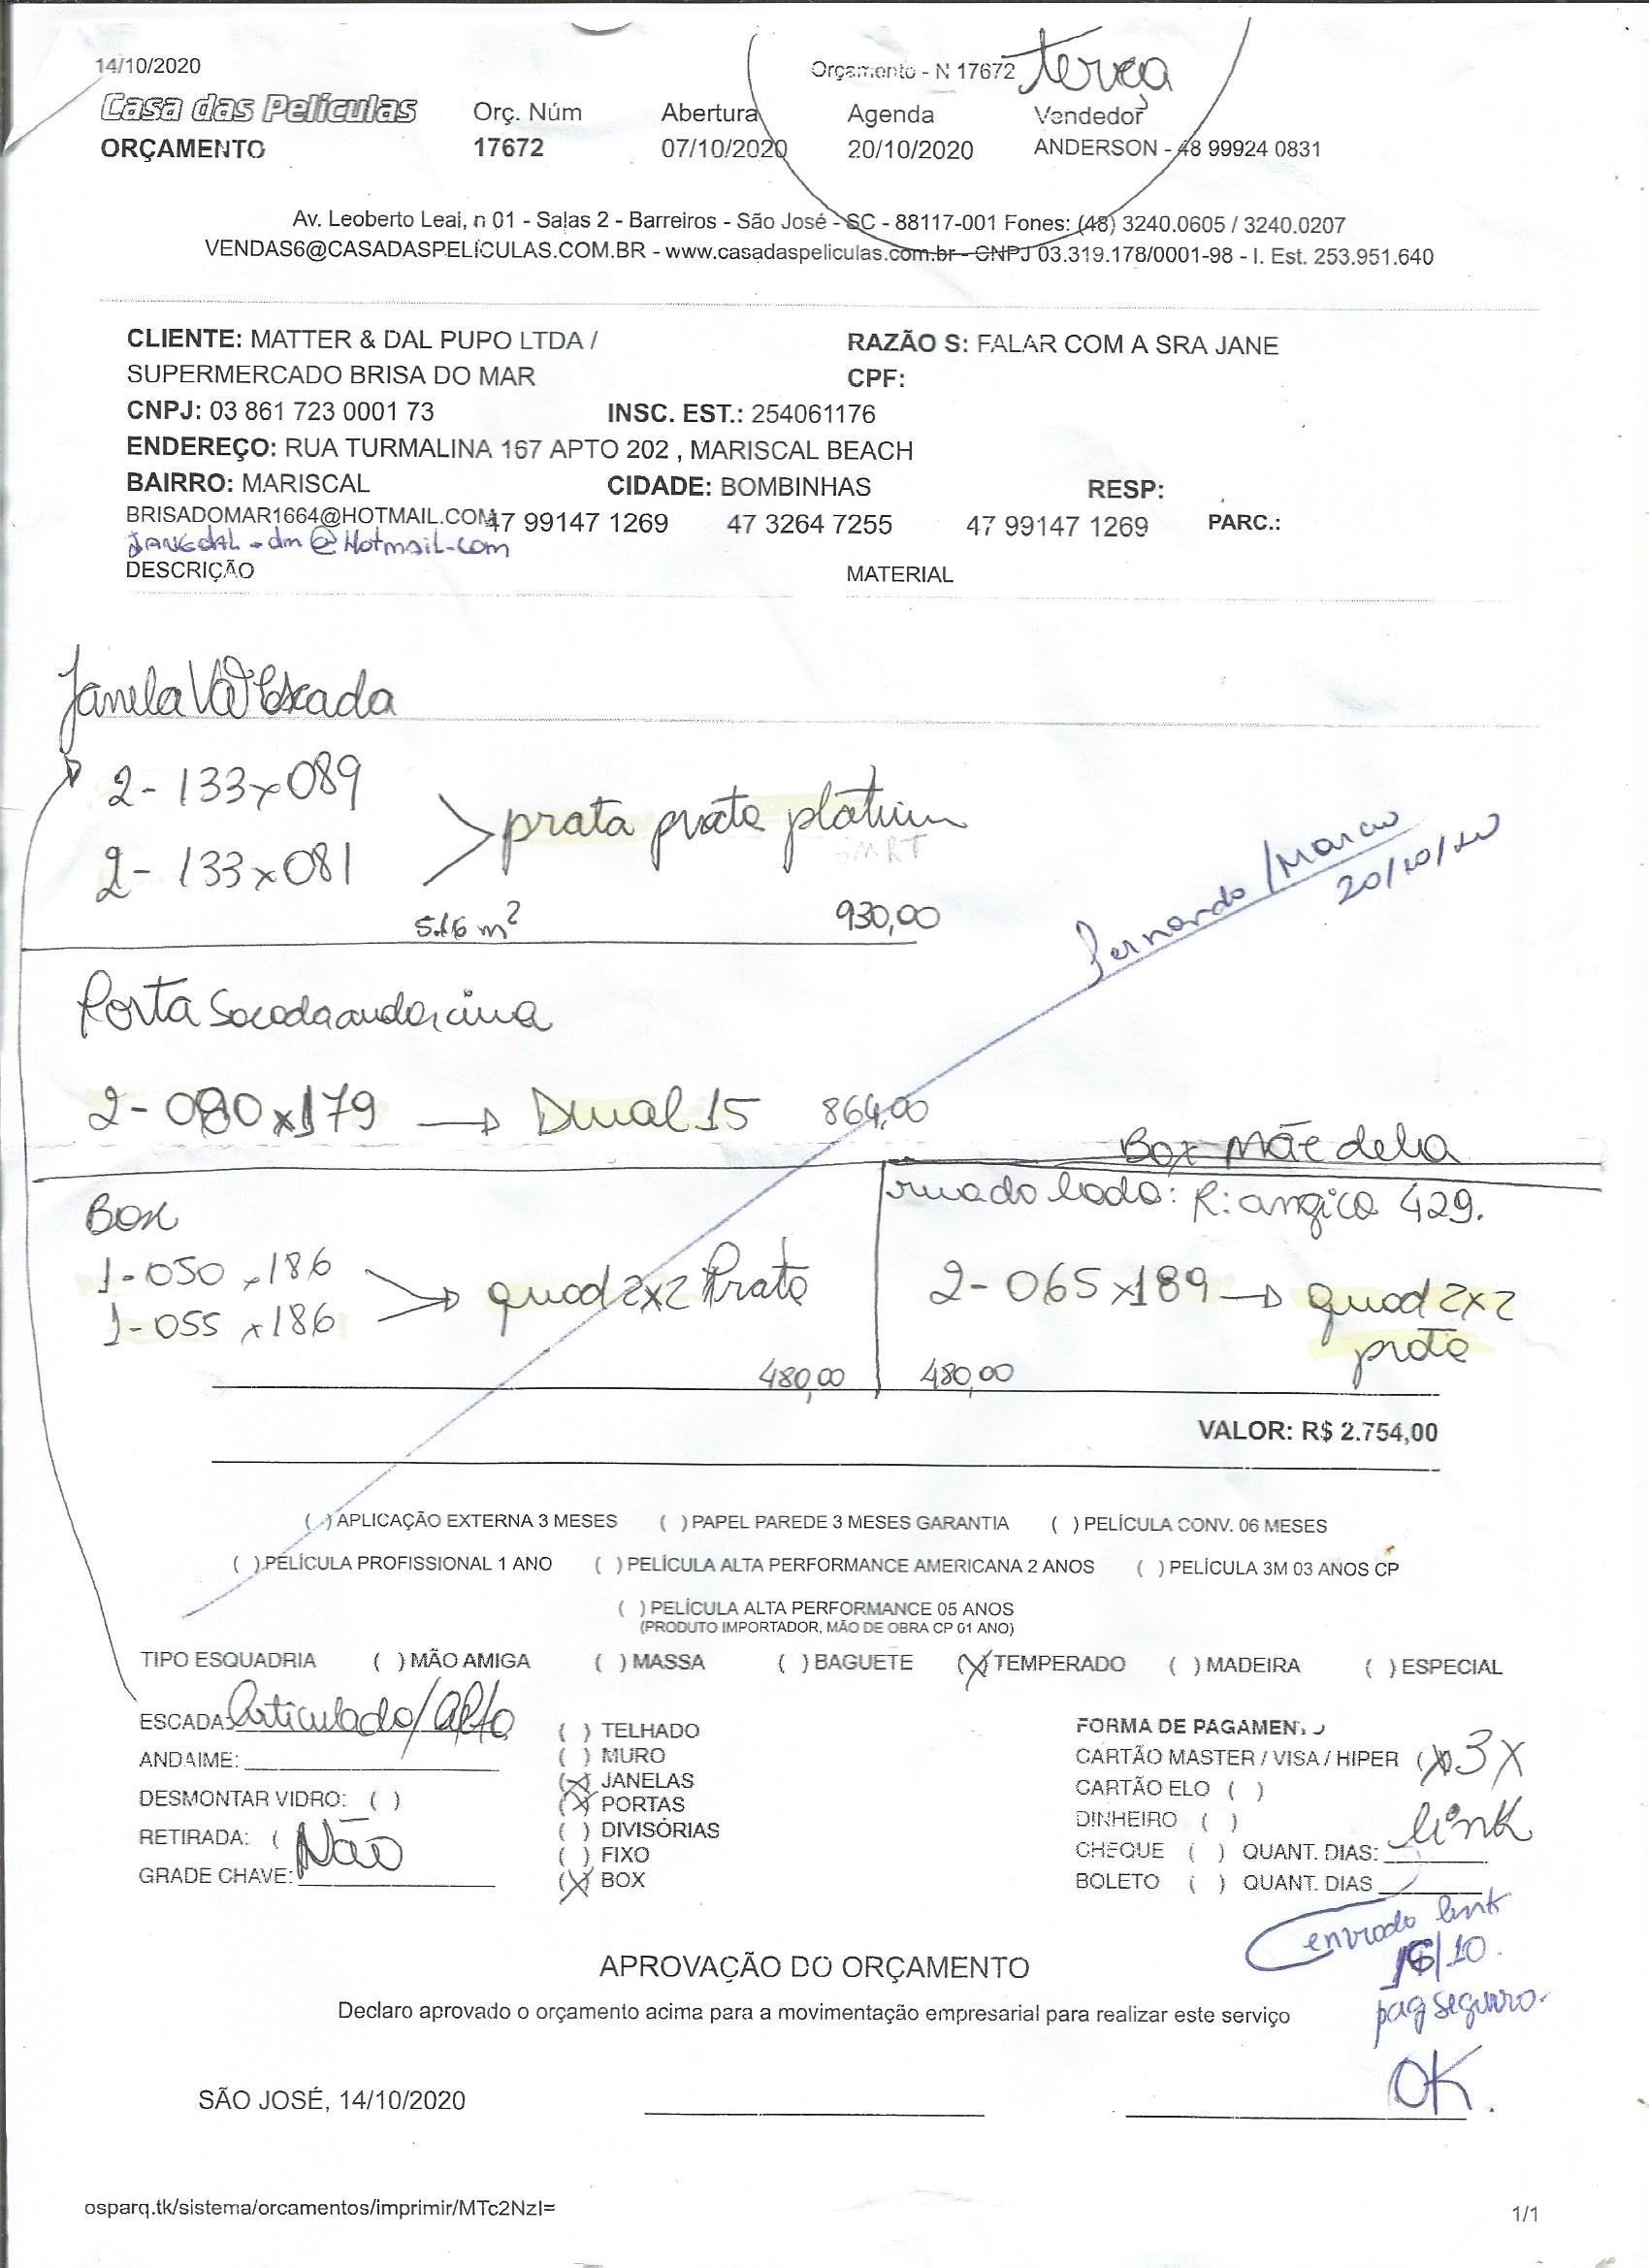 14/10/2020
Orçamento - N 17672 terça
Casa das Películas
Orç. Núm Abertura Agenda Vendedor
ORÇAMENTO 17672 07/10/2020 20/10/2020 ANDERSON - 48 99924 0831
Av. Leoberto Leal, n 01 - Salas 2 - Barreiros - São José - SC - 88117-001 Fones: (48) 3240.0605 / 3240.0207
VENDAS6@CASADASPELICULAS.COM.BR - www.casadaspeliculas.com.br - CNPJ 03.319.178/0001-98 - I. Est. 253.951.640
CLIENTE: MATTER & DAL PUPO LTDA / RAZÃO S: FALAR COM A SRA JANE
SUPERMERCADO BRISA DO MAR CPF:
CNPJ: 03 861 723 0001 73 INSC. EST.: 254061176
ENDEREÇO: RUA TURMALINA 167 APTO 202 , MARISCAL BEACH
BAIRRO: MARISCAL CIDADE: BOMBINHAS RESP:
BRISADOMAR1664@HOTMAIL.COM 47 99147 1269 47 3264 7255 47 99147 1269 PARC.:
JANEDAL-dm@Hotmail.com
DESCRIÇÃO MATERIAL
Janela Vão Escada
2- 133x089
2- 133x081
prata prata platium
SMRT
5.16 m² 930,00
Fernando / Marcio
20/10/20
Porta Sacada andar cima
2- 080x179 → Dual 15 864,00
Box Mãe dela
rua do lado: R: angico 429.
Box
1-050 x 186
1-055 x 186
quad 2x2 Prata
480,00
2- 065x189 → quad 2x2
prata
480,00
VALOR: R$ 2.754,00
( ) APLICAÇÃO EXTERNA 3 MESES ( ) PAPEL PAREDE 3 MESES GARANTIA ( ) PELÍCULA CONV. 06 MESES
( ) PELÍCULA PROFISSIONAL 1 ANO ( ) PELÍCULA ALTA PERFORMANCE AMERICANA 2 ANOS ( ) PELÍCULA 3M 03 ANOS CP
( ) PELÍCULA ALTA PERFORMANCE 05 ANOS
(PRODUTO IMPORTADOR, MÃO DE OBRA CP 01 ANO)
TIPO ESQUADRIA ( ) MÃO AMIGA ( ) MASSA ( ) BAGUETE (X) TEMPERADO ( ) MADEIRA ( ) ESPECIAL
ESCADA: Articulado/alto
ANDAIME:
DESMONTAR VIDRO: ( )
RETIRADA: ( Não
GRADE CHAVE:
( ) TELHADO
( ) MURO
(X) JANELAS
(X) PORTAS
( ) DIVISÓRIAS
( ) FIXO
(X) BOX
FORMA DE PAGAMEN
CARTÃO MASTER / VISA / HIPER (X) 3X
CARTÃO ELO ( )
DINHEIRO ( )
link
CHEQUE ( ) QUANT. DIAS:
BOLETO ( ) QUANT. DIAS
enviado link
16/10.
pag seguro.
OK.
APROVAÇÃO DO ORÇAMENTO
Declaro aprovado o orçamento acima para a movimentação empresarial para realizar este serviço
SÃO JOSÉ, 14/10/2020
osparq.tk/sistema/orcamentos/imprimir/MTc2NzI=
1/1